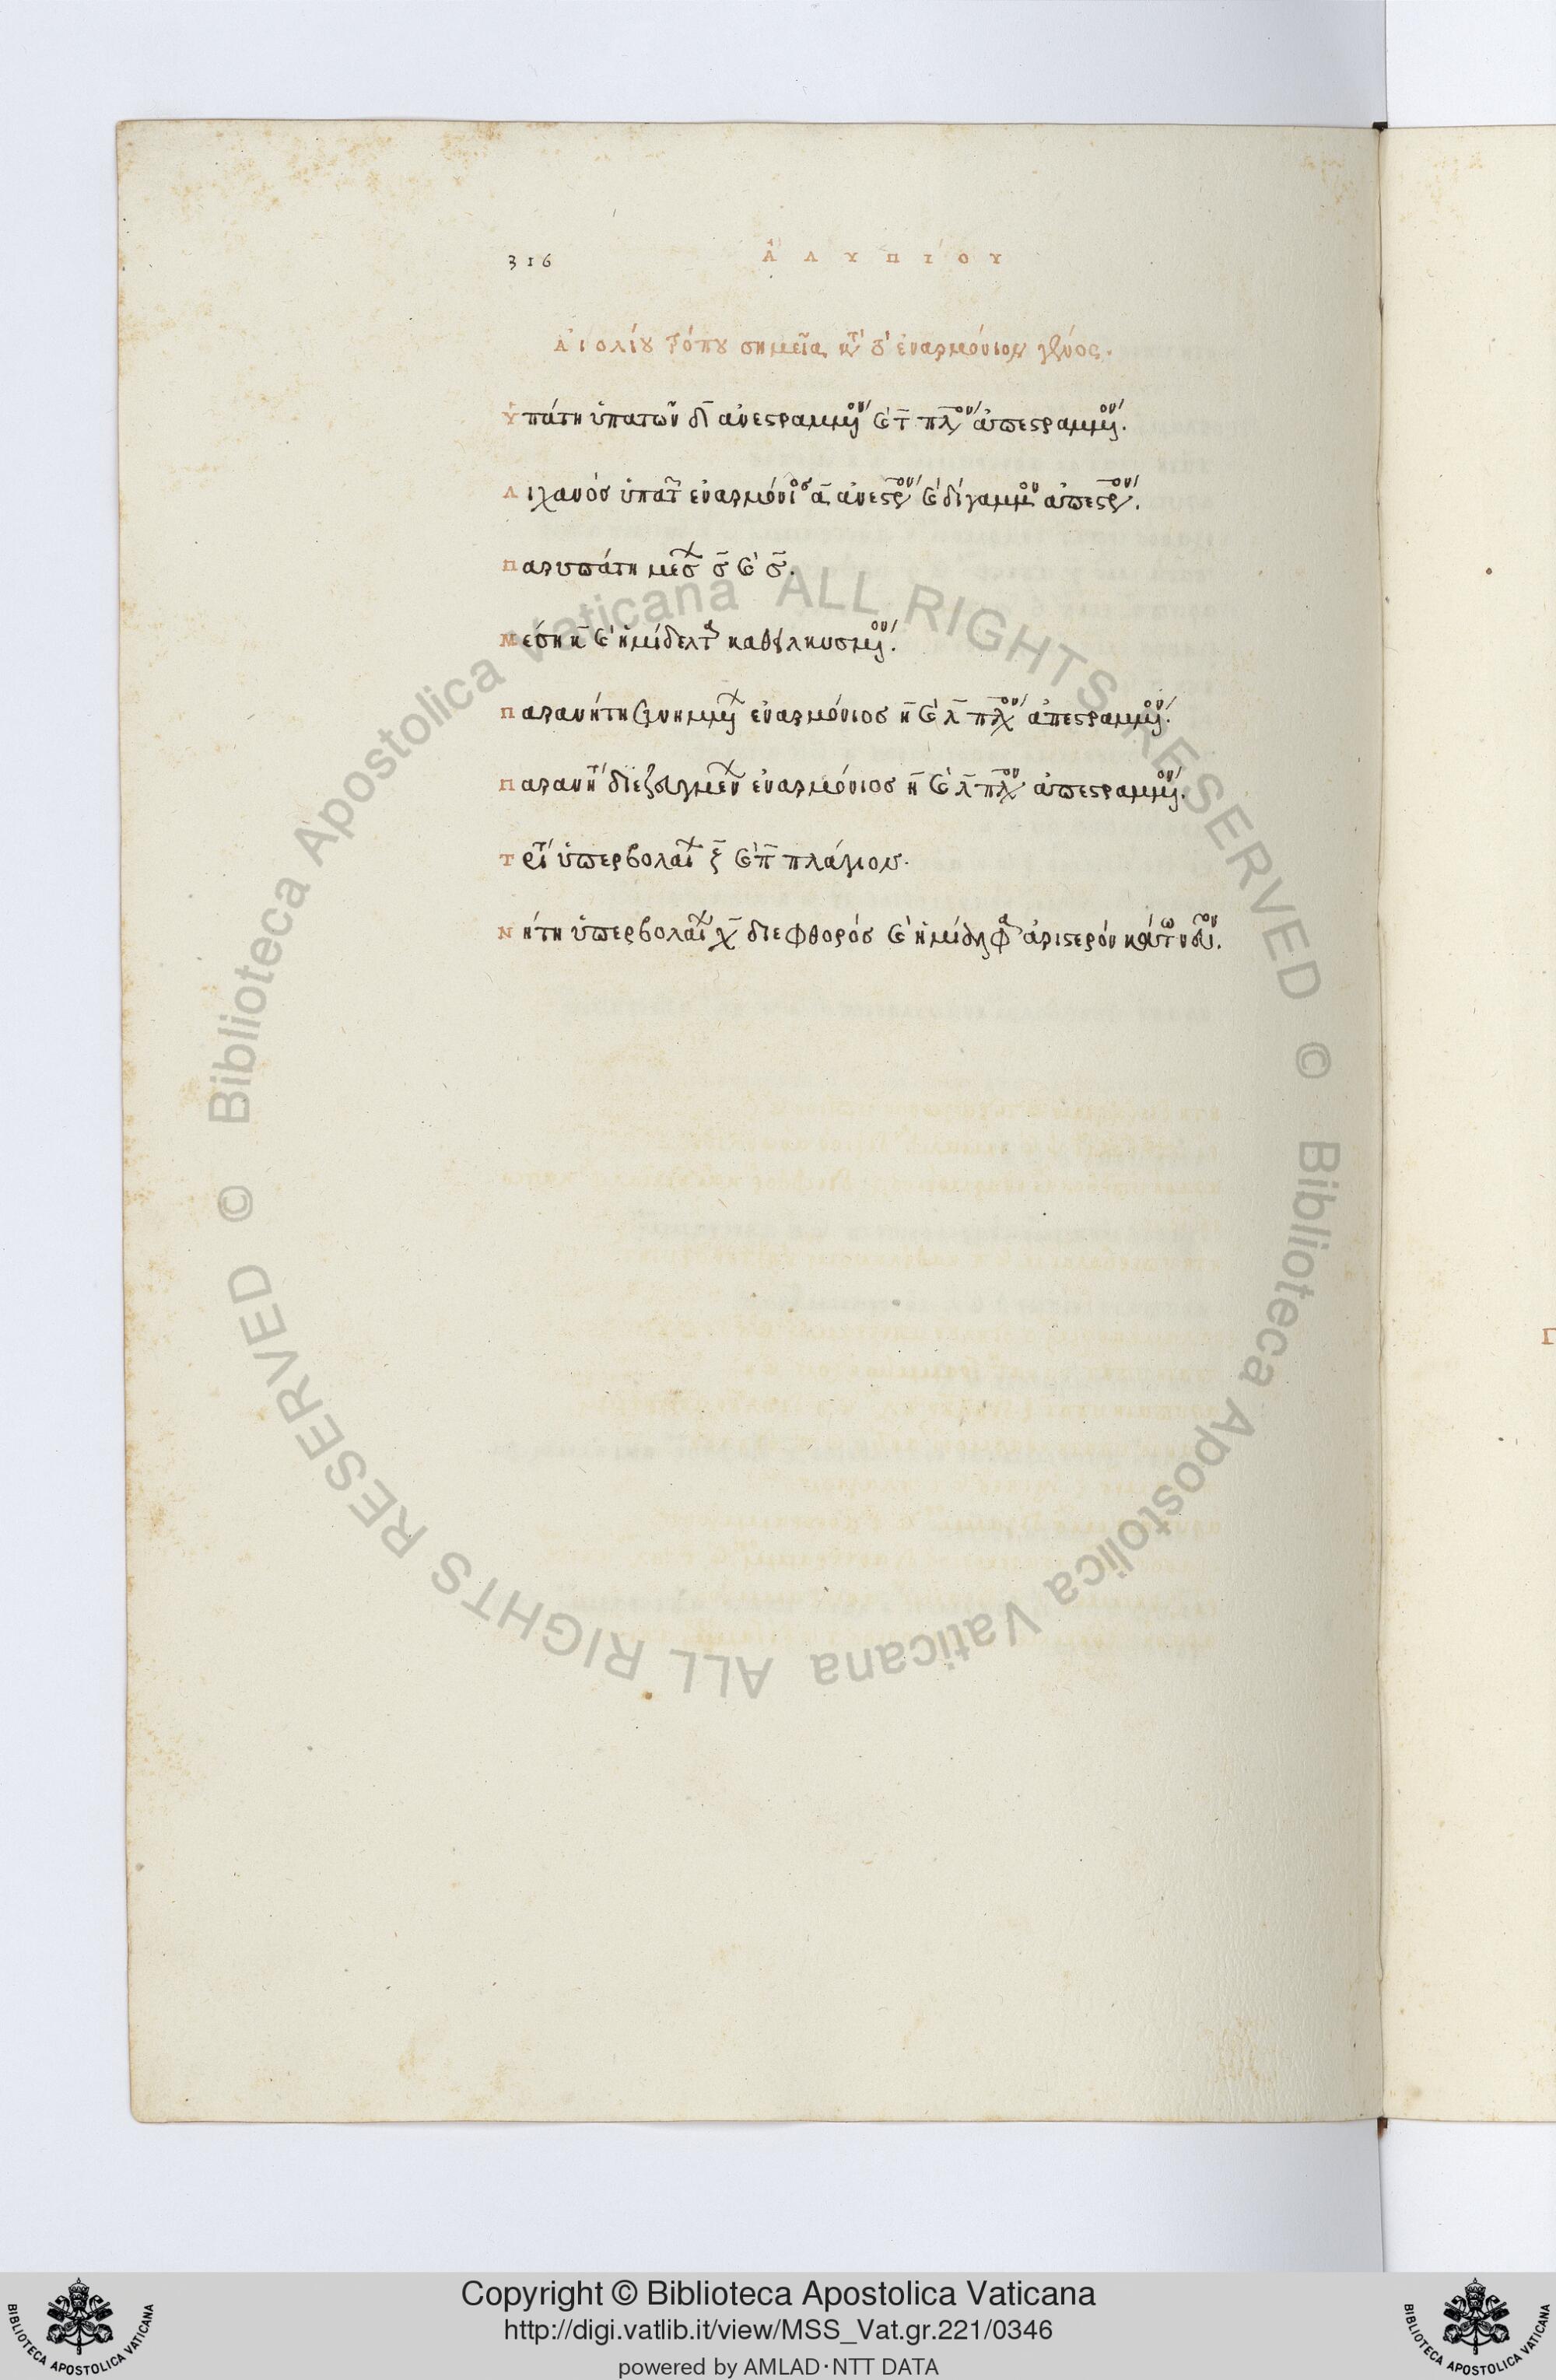 316 Ἀ Λ Υ Π Ι Ο Υ
Αἰολίου τρόπου σημεῖα κτ̀ τὸ ἐναρμόνιον γένος.
Ὑπάτη ὑπατῶν δ̄ι ἀνεστραμμένον καὶ τ̄ πλάγιον ἀπεστραμμένον.
Λιχανὸς ὑπατ ἐναρμόνιος ᾱ ἀνεστρ καὶ δίγαμμον ἀπεστρ.
Παρυπάτη μεσ σ̄ καὶ σ̄.
Μέση η̄ καὶ ἡμίδελτα καθειλκυσμένον.
Παρανήτη συνημμ ἐναρμόνιος η̄ καὶ λ̄ πλάγιον ἀπεστραμμένον.
Παρανητ διεζευγμεν ἐναρμόνιος η̄ καὶ λ̄ πλάγιον ἀπεστραμμένον.
Τρίτ ὑπερβολαι ξ̄ καὶ π̄ πλάγιον.
Νήτη ὑπερβολαι χ̄ διεφθορός καὶ ἡμίαλφα ἀριστερόν κάτω νεῦον.
Copyright © Biblioteca Apostolica Vaticana
http://digi.vatlib.it/view/MSS_Vat.gr.221/0346
powered by AMLAD·NTT DATA
© Biblioteca Apostolica Vaticana ALL RIGHTS RESERVED
© Biblioteca Apostolica Vaticana ALL RIGHTS RESERVED
BIBLIOTECA APOSTOLICA VATICANA
BIBLIOTECA APOSTOLICA VATICANA